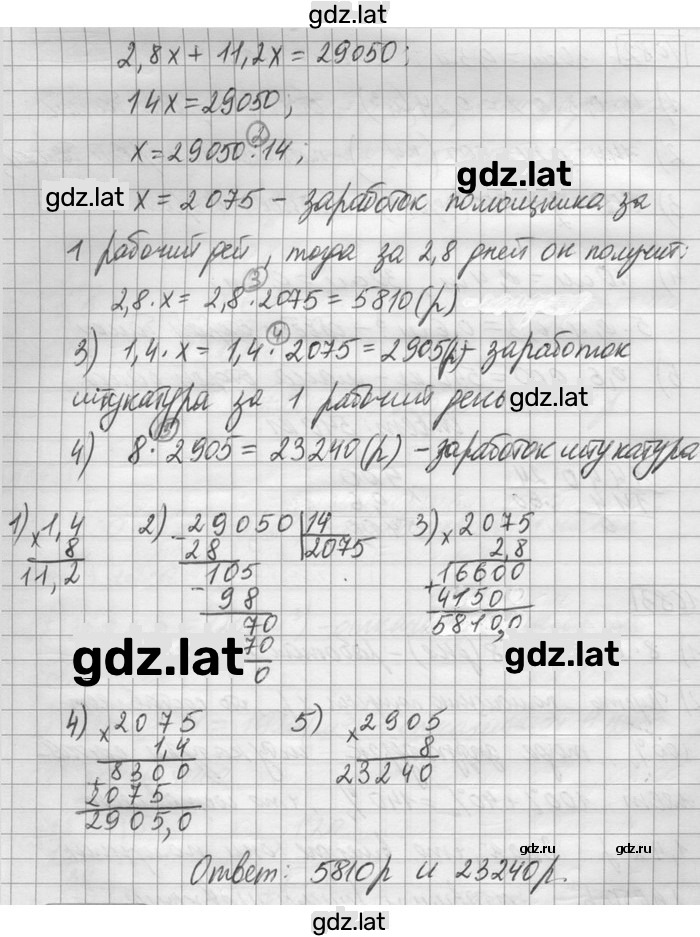 gdz.lat
2,8x + 11,2x = 29050;
14x = 29050;
2
x = 29050 : 14;
gdz.lat
gdz.lat
x = 2075 - заработок помощника за
1 рабочий дей, тогда за 2,8 дней он получит:
3
2,8 · x = 2,8 · 2075 = 5810 (р)
4
3) 1,4 · x = 1,4 · 2075 = 2905(р) - заработок
штукатура за 1 рабочий день
gdz.lat
5
4) 8 · 2905 = 23240 (р) - заработок штукатура
1) × 1,4
8
11,2
2) - 29050 | 14
28 2075
105
- 98
70
70
0
3) × 2075
2,8
+ 16600
4150
5810,0
gdz.lat
gdz.lat
4) × 2075
1,4
+ 8300
2075
2905,0
5) × 2905
8
23240
gdz.ru
gdz.ru
Ответ: 5810р и 23240р.
gdz.lat